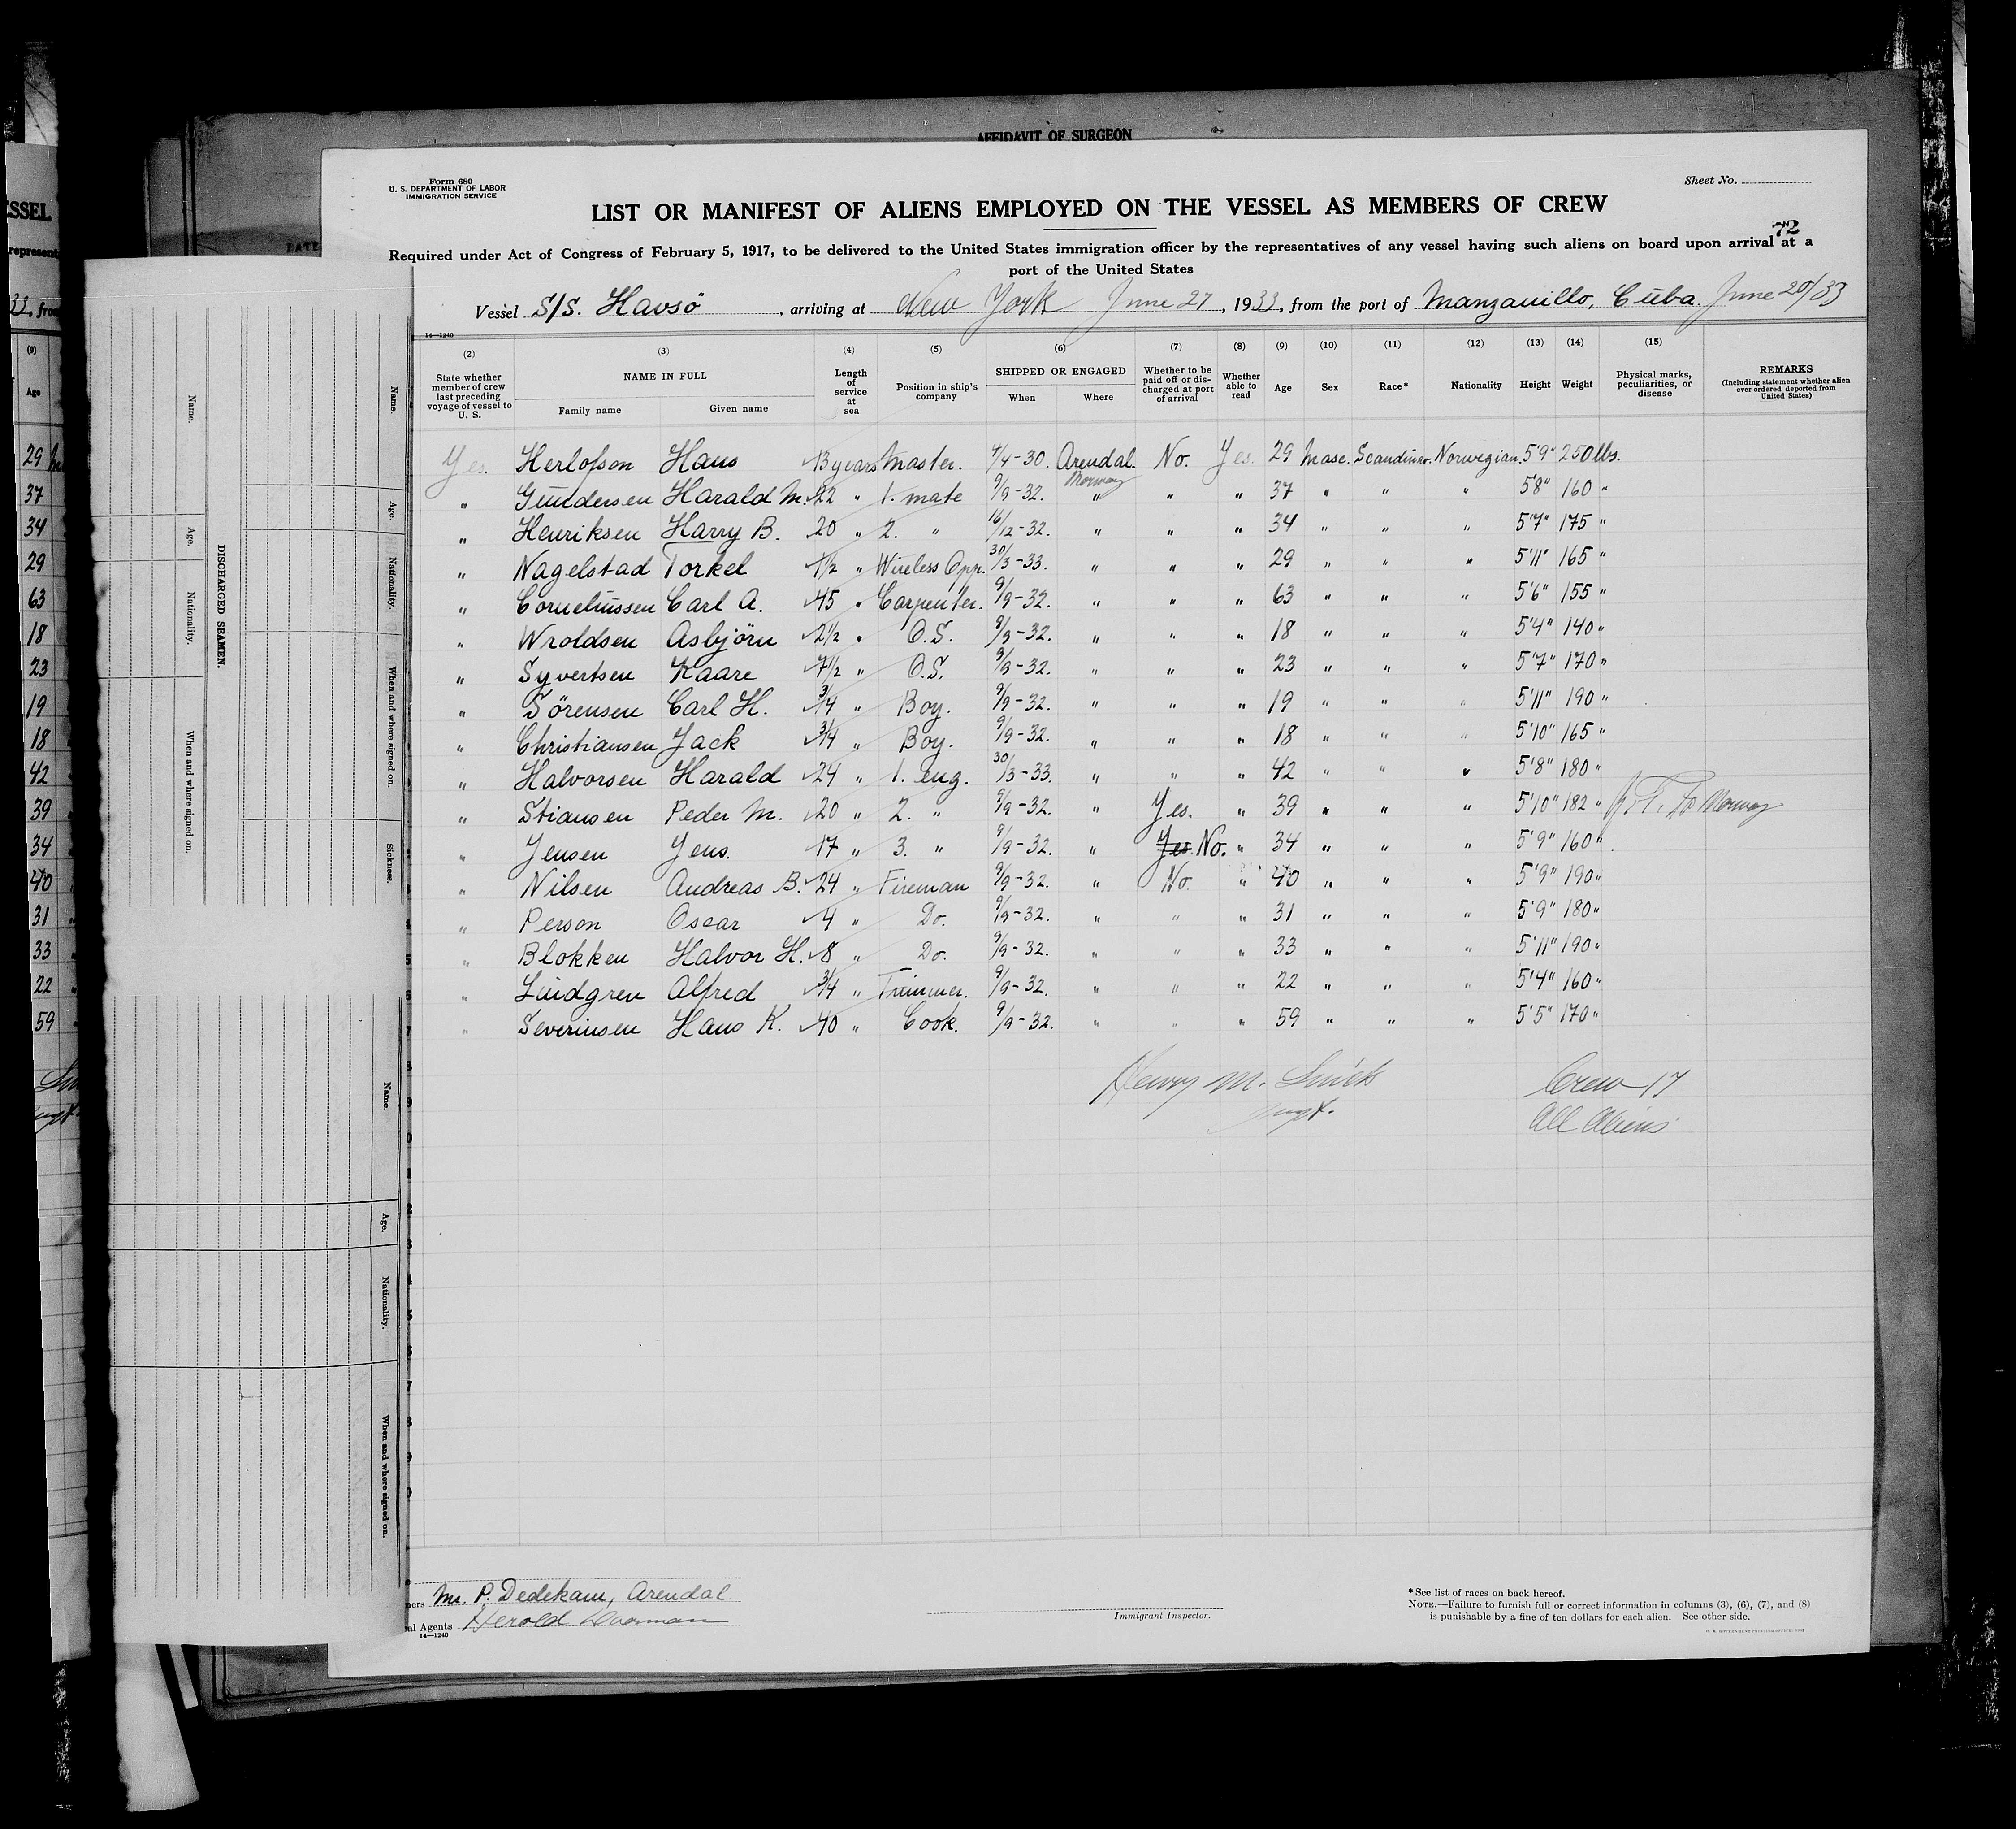 AFFIDAVIT OF SURGEON
Form 680
U. S. DEPARTMENT OF LABOR
IMMIGRATION SERVICE
Sheet No.
LIST OR MANIFEST OF ALIENS EMPLOYED ON THE VESSEL AS MEMBERS OF CREW
72
Required under Act of Congress of February 5, 1917, to be delivered to the United States immigration officer by the representatives of any vessel having such aliens on board upon arrival at a
port of the United States
Vessel S/S. Havsö, arriving at New York June 27, 1933, from the port of Manzanillo, Cuba. June 20/33
14—1240
(2) (3) (4) (5) (6) (7) (8) (9) (10) (11) (12) (13) (14) (15)
State whether member of crew last preceding voyage of vessel to U. S.
NAME IN FULL
Family name Given name
Length of service at sea
Position in ship's company
SHIPPED OR ENGAGED
When Where
Whether to be paid off or discharged at port of arrival
Whether able to read
Age Sex Race* Nationality Height Weight
Physical marks, peculiarities, or disease
REMARKS
(Including statement whether alien ever ordered deported from United States)
Yes. Herlofson Hans 13 years Master. 4/4-30. Arendal. Norway No. Yes. 29 Masc. Scandinav. Norwegian. 5'9" 250 lbs.
" Gundersen Harald M. 22 " 1. mate 9/9-32. " " " 37 " " " 5'8" 160 "
" Henriksen Harry B. 20 " 2. " 16/12-32. " " " 34 " " " 5'7" 175 "
" Nagelstad Torkel 1½ " Wireless Opp. 30/3-33. " " " 29 " " " 5'11" 165 "
" Corneliussen Carl A. 45 " Carpenter. 9/9-32. " " " 63 " " " 5'6" 155 "
" Wroldsen Asbjörn 2½ " O.S. 9/9-32. " " " 18 " " " 5'4" 140 "
" Syvertsen Kaare 7½ " O.S. 9/9-32. " " " 23 " " " 5'7" 170 "
" Sörensen Carl H. 3/4 " Boy. 9/9-32. " " " 19 " " " 5'11" 190 "
" Christiansen Jack 3/4 " Boy. 9/9-32. " " " 18 " " " 5'10" 165 "
" Halvorsen Harald 24 " 1. eng. 30/3-33. " " " 42 " " " 5'8" 180 "
" Stiansen Peder M. 20 " 2. " 9/9-32. " Yes. " 39 " " " 5'10" 182 " to Norway
" Jensen Jens. 17 " 3. " 9/9-32. " Yes No. " 34 " " " 5'9" 160 "
" Nilsen Andreas B. 24 " Fireman 9/9-32. " No. " 40 " " " 5'9" 190 "
" Person Oscar 4 " Do. 9/9-32. " " " 31 " " " 5'9" 180 "
" Blokken Halvor H. 8 " Do. 9/9-32. " " " 33 " " " 5'11" 190 "
" Lindgren Alfred 3/4 " Trimmer. 9/9-32. " " " 22 " " " 5'4" 160 "
" Severinsen Hans K. 40 " Cook. 9/9-32. " " " 59 " " " 5'5" 170 "
Henry M.
Crew 17
All Aliens
Mr. P. Dedekam, Arendal
Agents Herold
14—1240
Immigrant Inspector.
*See list of races on back hereof.
NOTE.—Failure to furnish full or correct information in columns (3), (6), (7), and (8)
is punishable by a fine of ten dollars for each alien. See other side.
DISCHARGED SEAMEN.
Name. Age. Nationality. When and where signed on.
Name. Age. Nationality. When and where signed on. Sickness.
Name. Age. Nationality. When and where signed on.
(9)
Age
29
37
34
29
63
18
23
19
18
42
39
34
40
31
33
22
59